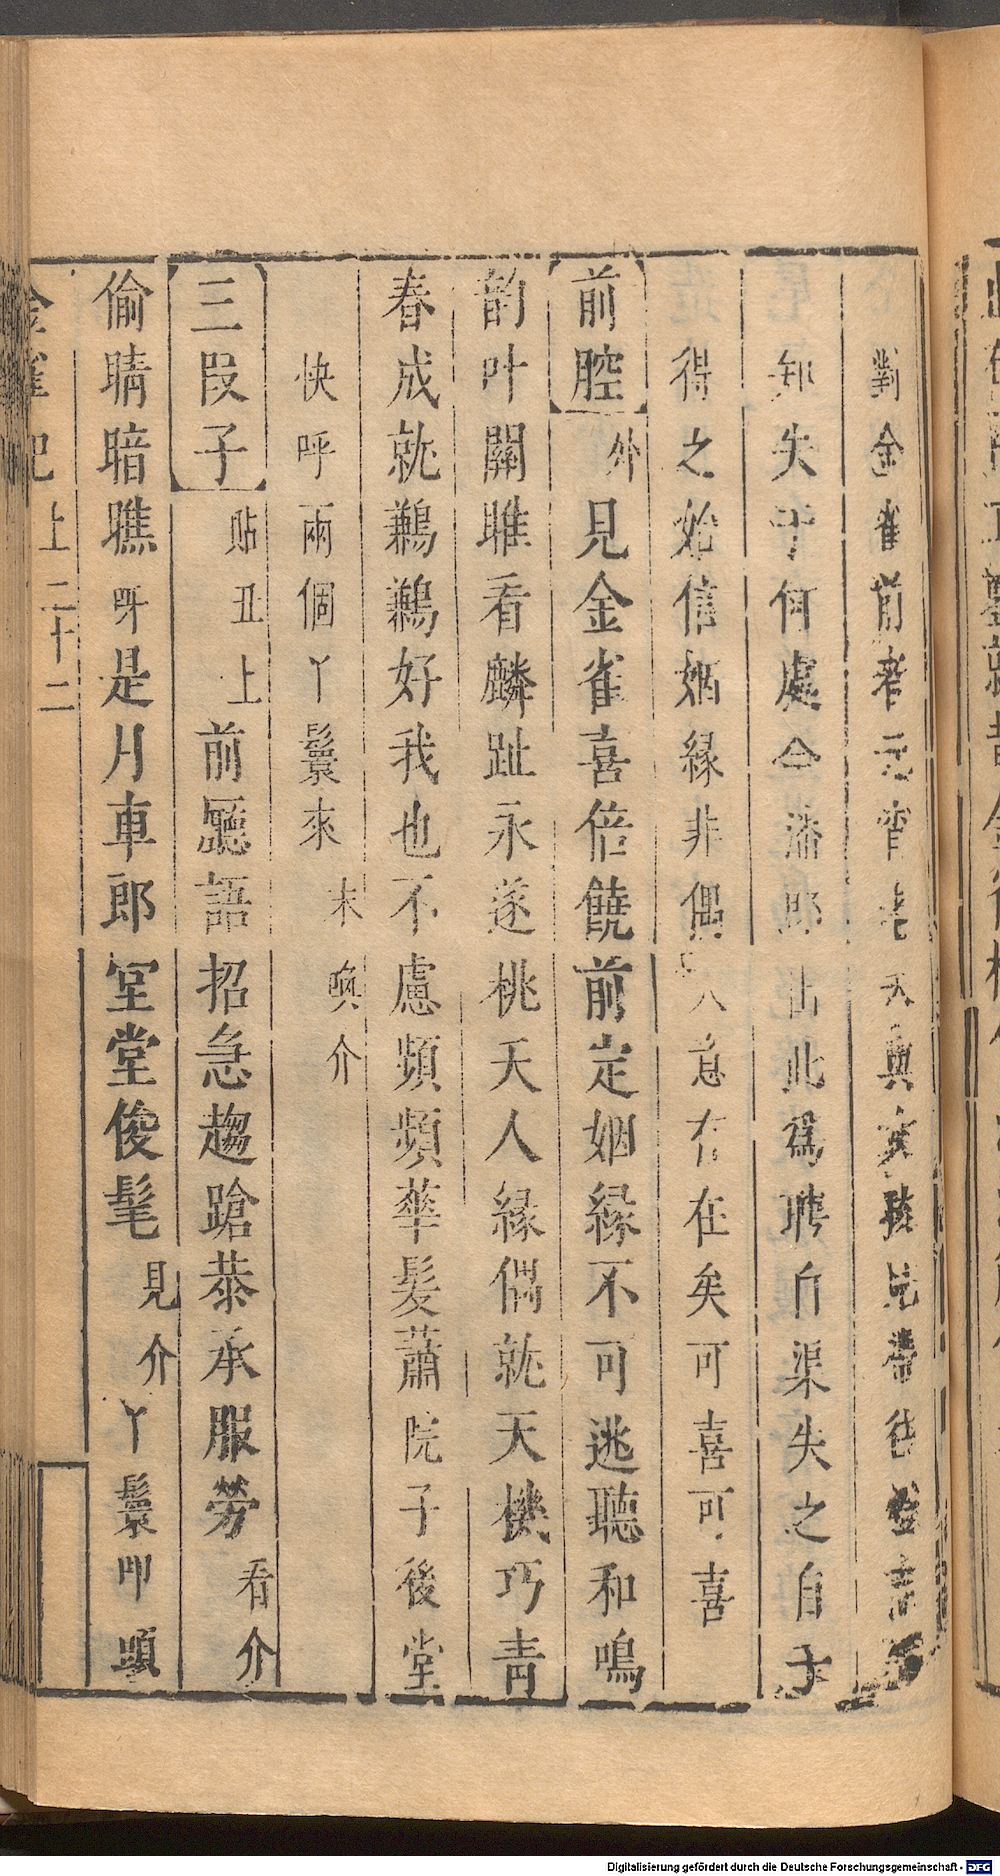 對金雀前者元宵老夫與女孩兒帶往燈
知失于何處今潘郎出此爲聘自渠失之自于
得之始信姻緣非偶人意有在矣可喜可喜
前腔外見金雀喜倍饒前定姻緣不可逃聽和鳴
韵叶關雎看麟趾永遂桃夭人緣偶就天機巧靑
春成就鶼鶼好我也不慮頻頻華髮蕭院子後堂
快呼兩個丫鬟來末喚介
三段子貼丑上前廳語招急趨蹌恭承服勞看介
偷睛暗瞧呀是月車郎室堂俊髦見介丫鬟叩頭
金雀記 上 二十二
Digitalisierung gefördert durch die Deutsche Forschungsgemeinschaft - DFG